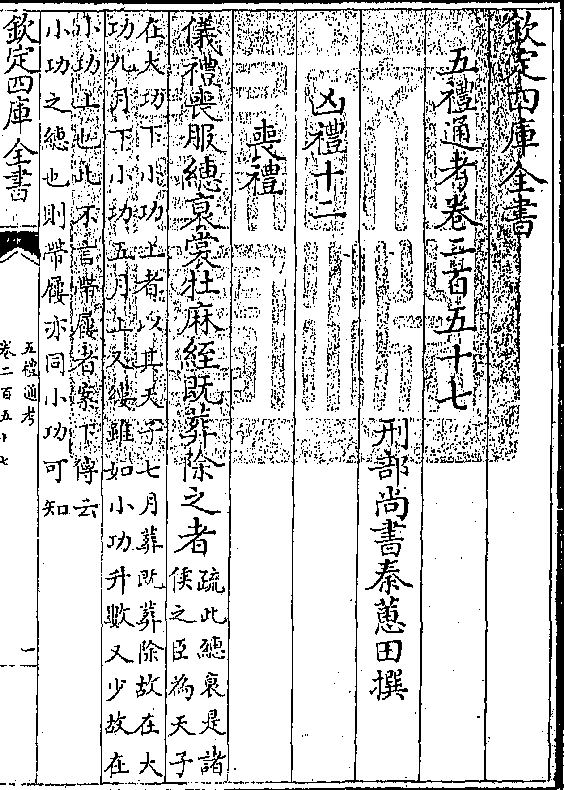 欽定四庫全書
五禮通考卷二百五十七
刑部尚書秦蕙田撰
凶禮十二
喪禮
儀禮喪服繐衰裳牡麻絰既葬除之者
疏此繐衰是諸
侯之臣為天子
在大功下小功上者以其天子七月葬既葬除故在大
功九月下小功五月上又縷雖如小功升數又少故在
小功上也此不言帶屨者案下傳云
小功之繐也則帶屨亦同小功可知
欽定四庫全書
五禮通考
卷二百五十七
一